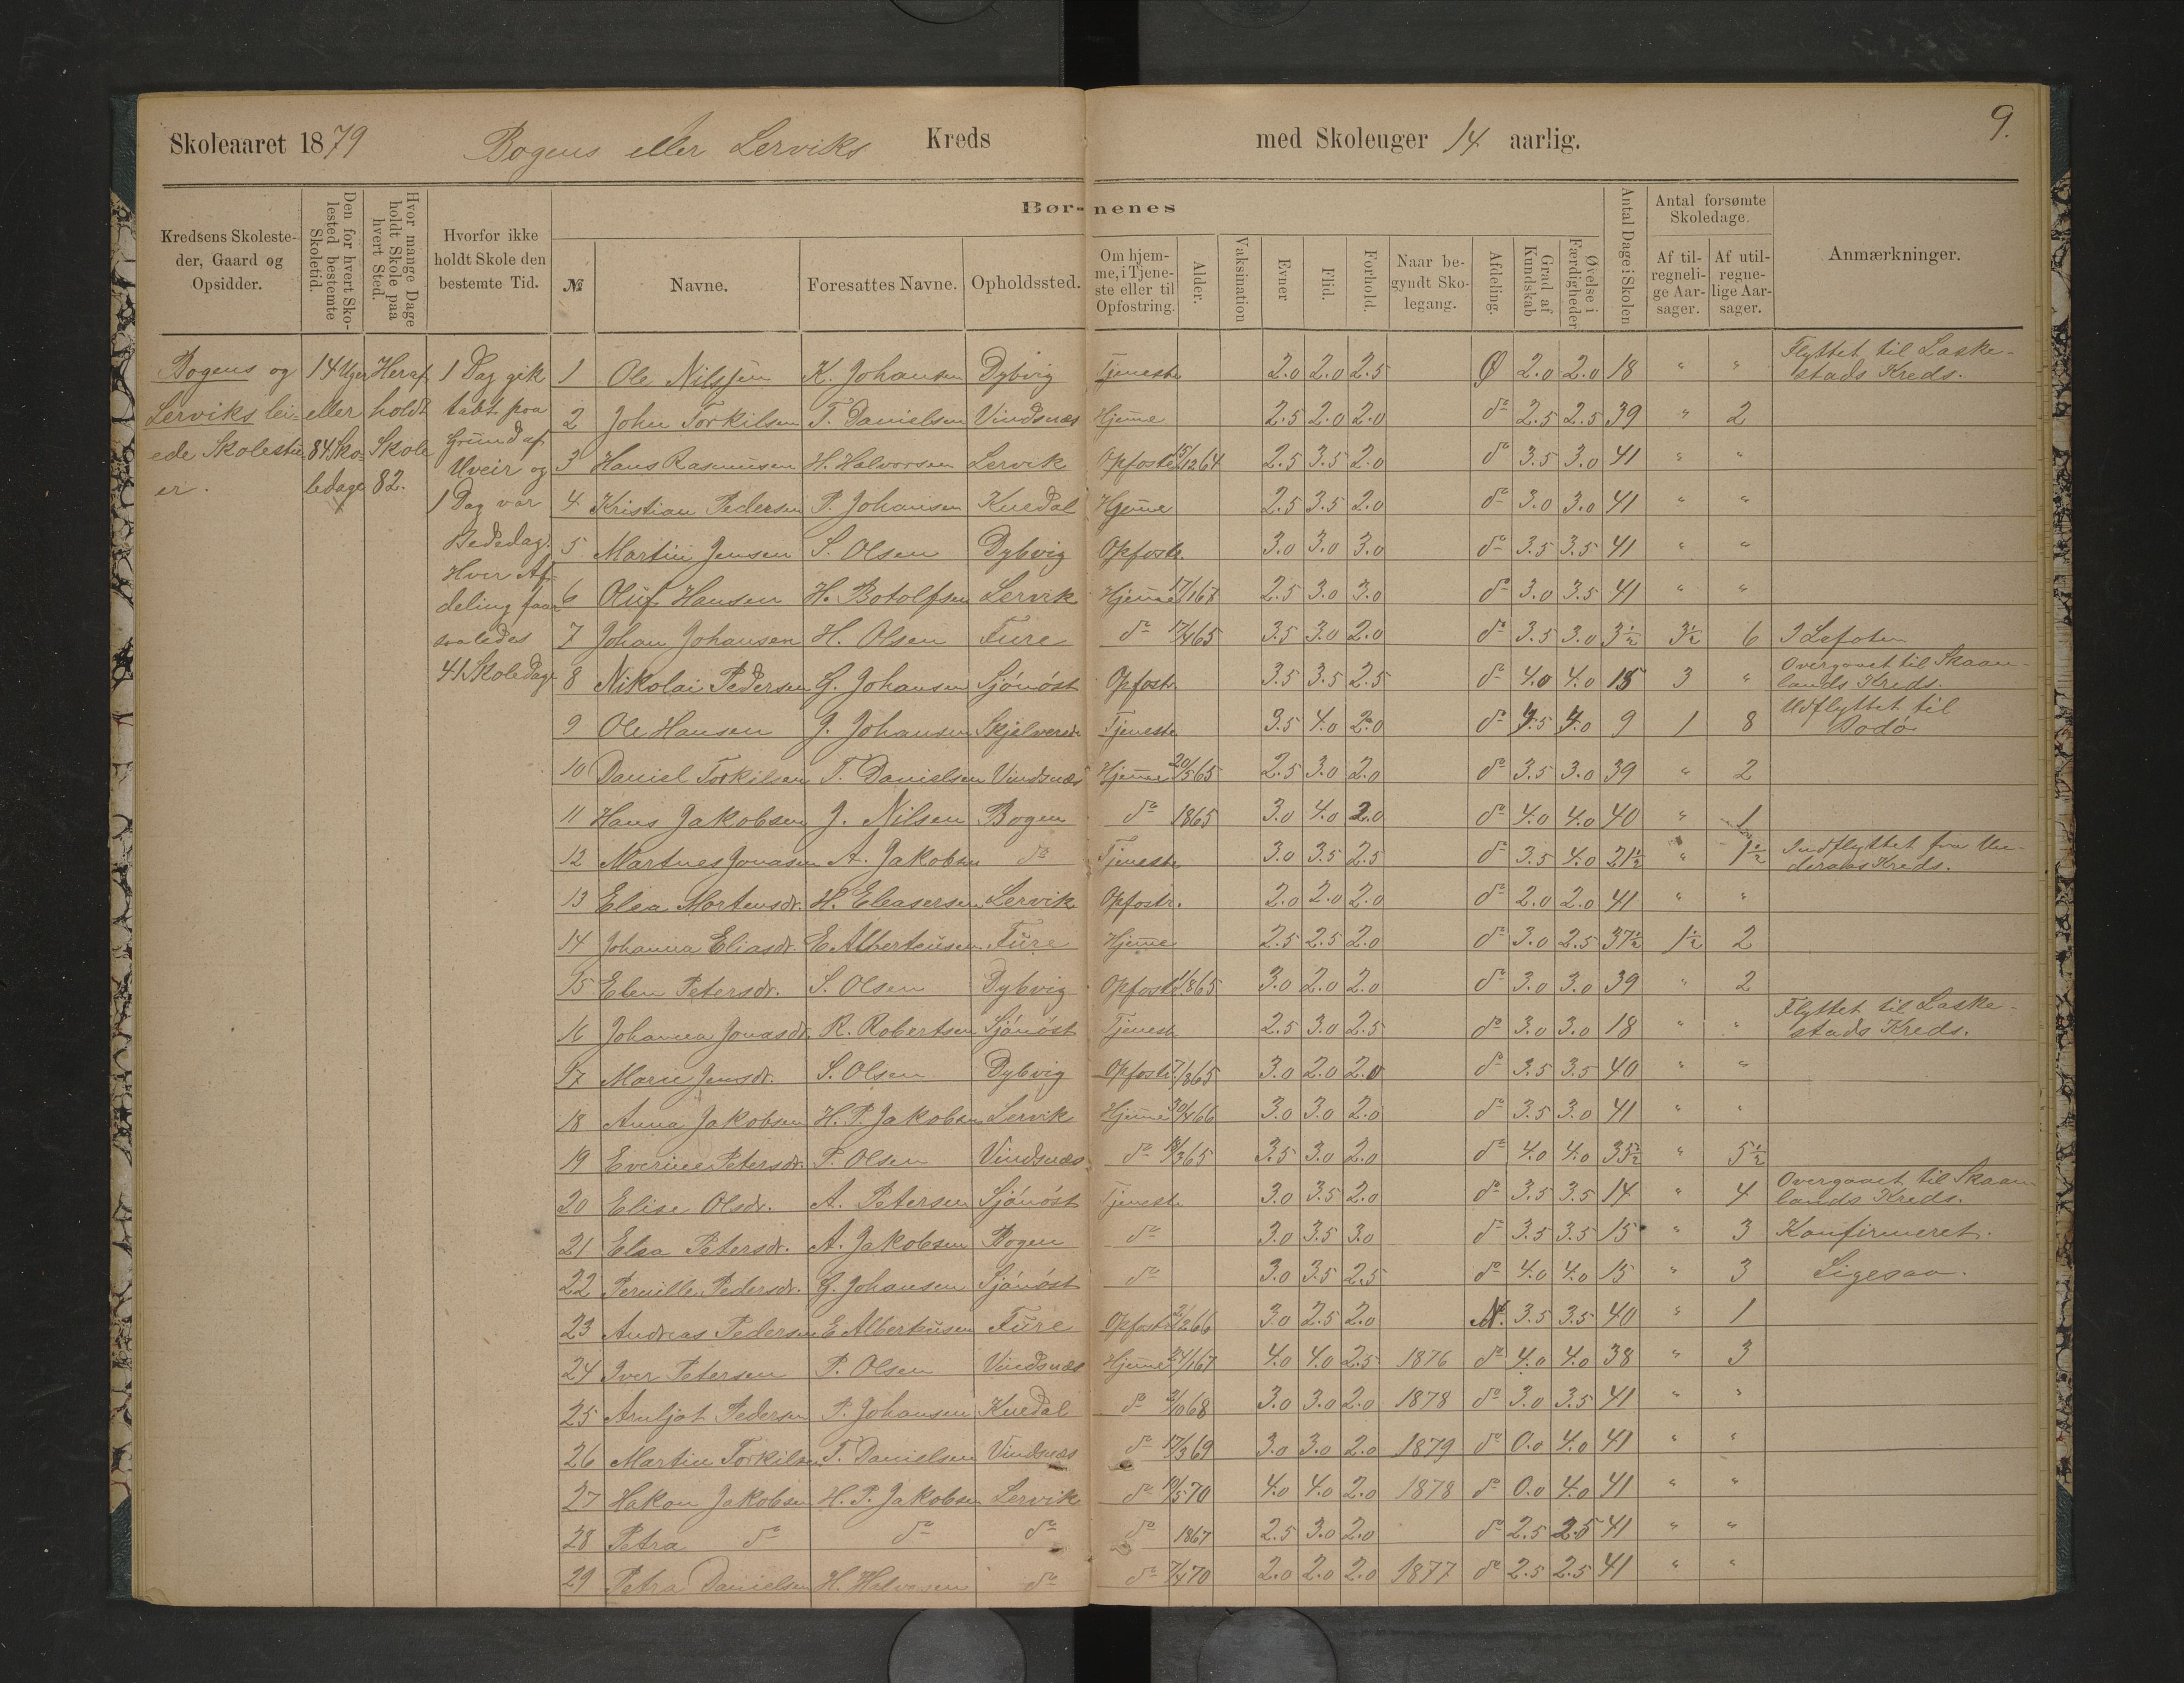 9.
Skoleaaret 1879 Bogens eller Lerviks Kreds med Skoleuger 14 aarlig.
Kredsens Skolesteder, Gaard og Opsidder.
Den for hvert Skolested bestemte Skoletid.
Hvor mange Dage holdt Skole paa hvert Sted.
Hvorfor ikke holdt Skole den bestemte Tid.
Børnenes
№ Navne. Foresattes Navne. Opholdssted. Om hjemme, i Tjeneste eller til Opfostring. Alder. Vaksination Evner Flid. Forhold. Naar begyndt Skolegang. Afdeling. Grad af Kundskab Øvelse i Færdigheder Antal Dage i Skolen
Antal forsømte Skoledage.
Af tilregnelige Aarsager. Af utilregnelige Aarsager.
Anmærkninger.
Bogens og
Lerviks lei-
ede Skolestu-
er.
14 Uger
eller
84 Sko-
ledage
Heraf
holdt
Skole
82.
1 Dag gik
tabt paa
Grund af
Uveir og
1 Dag var
Bededag.
Hver Af-
deling faar
saaledes
41 Skoledage
1 Ole Nilssen K. Johansen Dybvig Tjeneste 2.0 2.0 2.5 Ø 2.0 2.0 18 " " Flyttet til Laske-
stads Kreds.
2 John Torkilsen T. Danielsen Vindsnæs Hjemme 2.5 2.0 2.0 do 2.5 2.5 39 " 2
3 Hans Rasmusen H. Halvorsen Lervik Opfostr 15/12 64 2.5 3.5 2.0 do 3.5 3.0 41 " "
4 Kristian Pedersen P. Johansen Kuedal Hjemme 2.5 3.5 2.0 do 3.0 3.0 41 " "
5 Martin Jensen S. Olsen Dybvig Opfostr. 3.0 3.0 3.0 do 3.5 3.5 41 " "
6 Oluf Hansen H. Botolfsen Lervik Hjemme 17/1 67 2.5 3.0 3.0 do 3.0 3.5 41 " "
7 Johan Johansen H. Olsen Fure do 17/4 65 3.5 3.0 2.0 do 3.5 3.0 3½ 3½ 6 I Lofoten
8 Nikolai Pedersen G. Johansen Sjónóst Opfostr. 3.5 3.5 2.5 do 4.0 4.0 15 3 " Overgaaet til Skaan-
lands Kreds.
9 Ole Hansen J. Johansen Tjeneste 3.5 4.0 2.0 do 4.5 4.0 9 1 8 Udflyttet til
Bodó
10 Daniel Torkilsen T. Danielsen Vindsnæs Hjemme 20/5 65 2.5 3.0 2.0 do 3.5 3.0 39 " 2
11 Hans Jakobsen J. Nilsen Bogen do 1865 3.0 4.0 2.0 do 4.0 4.0 40 " 1
12 Martnes Jonasen A. Jakobsen do Tjeneste 3.0 3.5 2.5 do 3.5 4.0 21½ " 1½ Indflyttet fra
Kreds.
13 Elea Mortensdr. H. Eleasersen Lervik Opfostr. 2.0 2.0 2.0 do 2.0 2.0 41 " "
14 Johanna Eliasdr. E Alberteusen Fure Hjemme 2.5 2.5 2.0 do 3.0 2.5 37½ 1½ 2
15 Elen Petersdr. S. Olsen Dybvig Opfostr. 865 3.0 2.0 2.0 do 3.0 3.0 39 " 2
16 Johanna Jonasdr. R. Robertsen Sjónóst Tjenest 2.5 3.0 2.5 do 3.0 3.0 18 " " Flyttet til Laske-
stads Kreds.
17 Marie Jensdr. S. Olsen Dybvig Opfostr. 865 3.0 2.0 2.0 do 3.5 3.5 40 " "
18 Anna Jakobsen H. P. Jakobsen Lervik Hjemme 30/4 66 3.0 3.0 2.0 do 3.5 3.0 41 " "
19 Everine Petersdr. P. Olsen Vindsnæs do 18/3 65 3.5 3.0 2.0 do 4.0 4.0 35½ " 5½
20 Elise Olsdr. A. Petersen Sjónóst Tjenest. 3.0 3.5 2.0 do 3.5 3.5 14 " 4 Overgaaet til Skaan-
lands Kreds.
21 Elsa Petersdr. A. Jakobsen Bogen do 3.0 3.5 3.0 do 3.5 3.5 15 " 3 Konfirmeret.
22 Pernille Pedersdr. G. Johansen Sjónóst do 3.0 3.5 2.5 do 4.0 4.0 15 " 3 Ligesaa.
23 Andreas Pedersen E Alberteusen Fure Opfostr. 66 3.0 2.5 2.0 N. 3.5 3.5 40 " 1
24 Iver Petersen P. Olsen Vindsnæs Hjemme 24/1 67 4.0 4.0 2.5 1876 do 4.0 4.0 38 " 3
25 Arnljot Pedersen P. Johansen Kuedal do 2/10 68 3.0 3.0 2.0 1878 do 3.0 3.5 41 " "
26 Martin Torkilsen T. Danielsen Vindsnæs do 17/3 69 3.0 3.0 2.0 1879 do 0.0 4.0 41 " "
27 Hakon Jakobsen H. P. Jakobsen Lervik do 19/5 70 4.0 4.0 2.0 1878 do 0.0 4.0 41 " "
28 Petra do do do do 1867 2.5 3.0 2.0 do 2.5 2.5 41 " "
29 Petra Danielsen H. Halvorsen do do 7/4 70 2.0 2.0 2.0 1877 do 2.5 2.5 41 " "